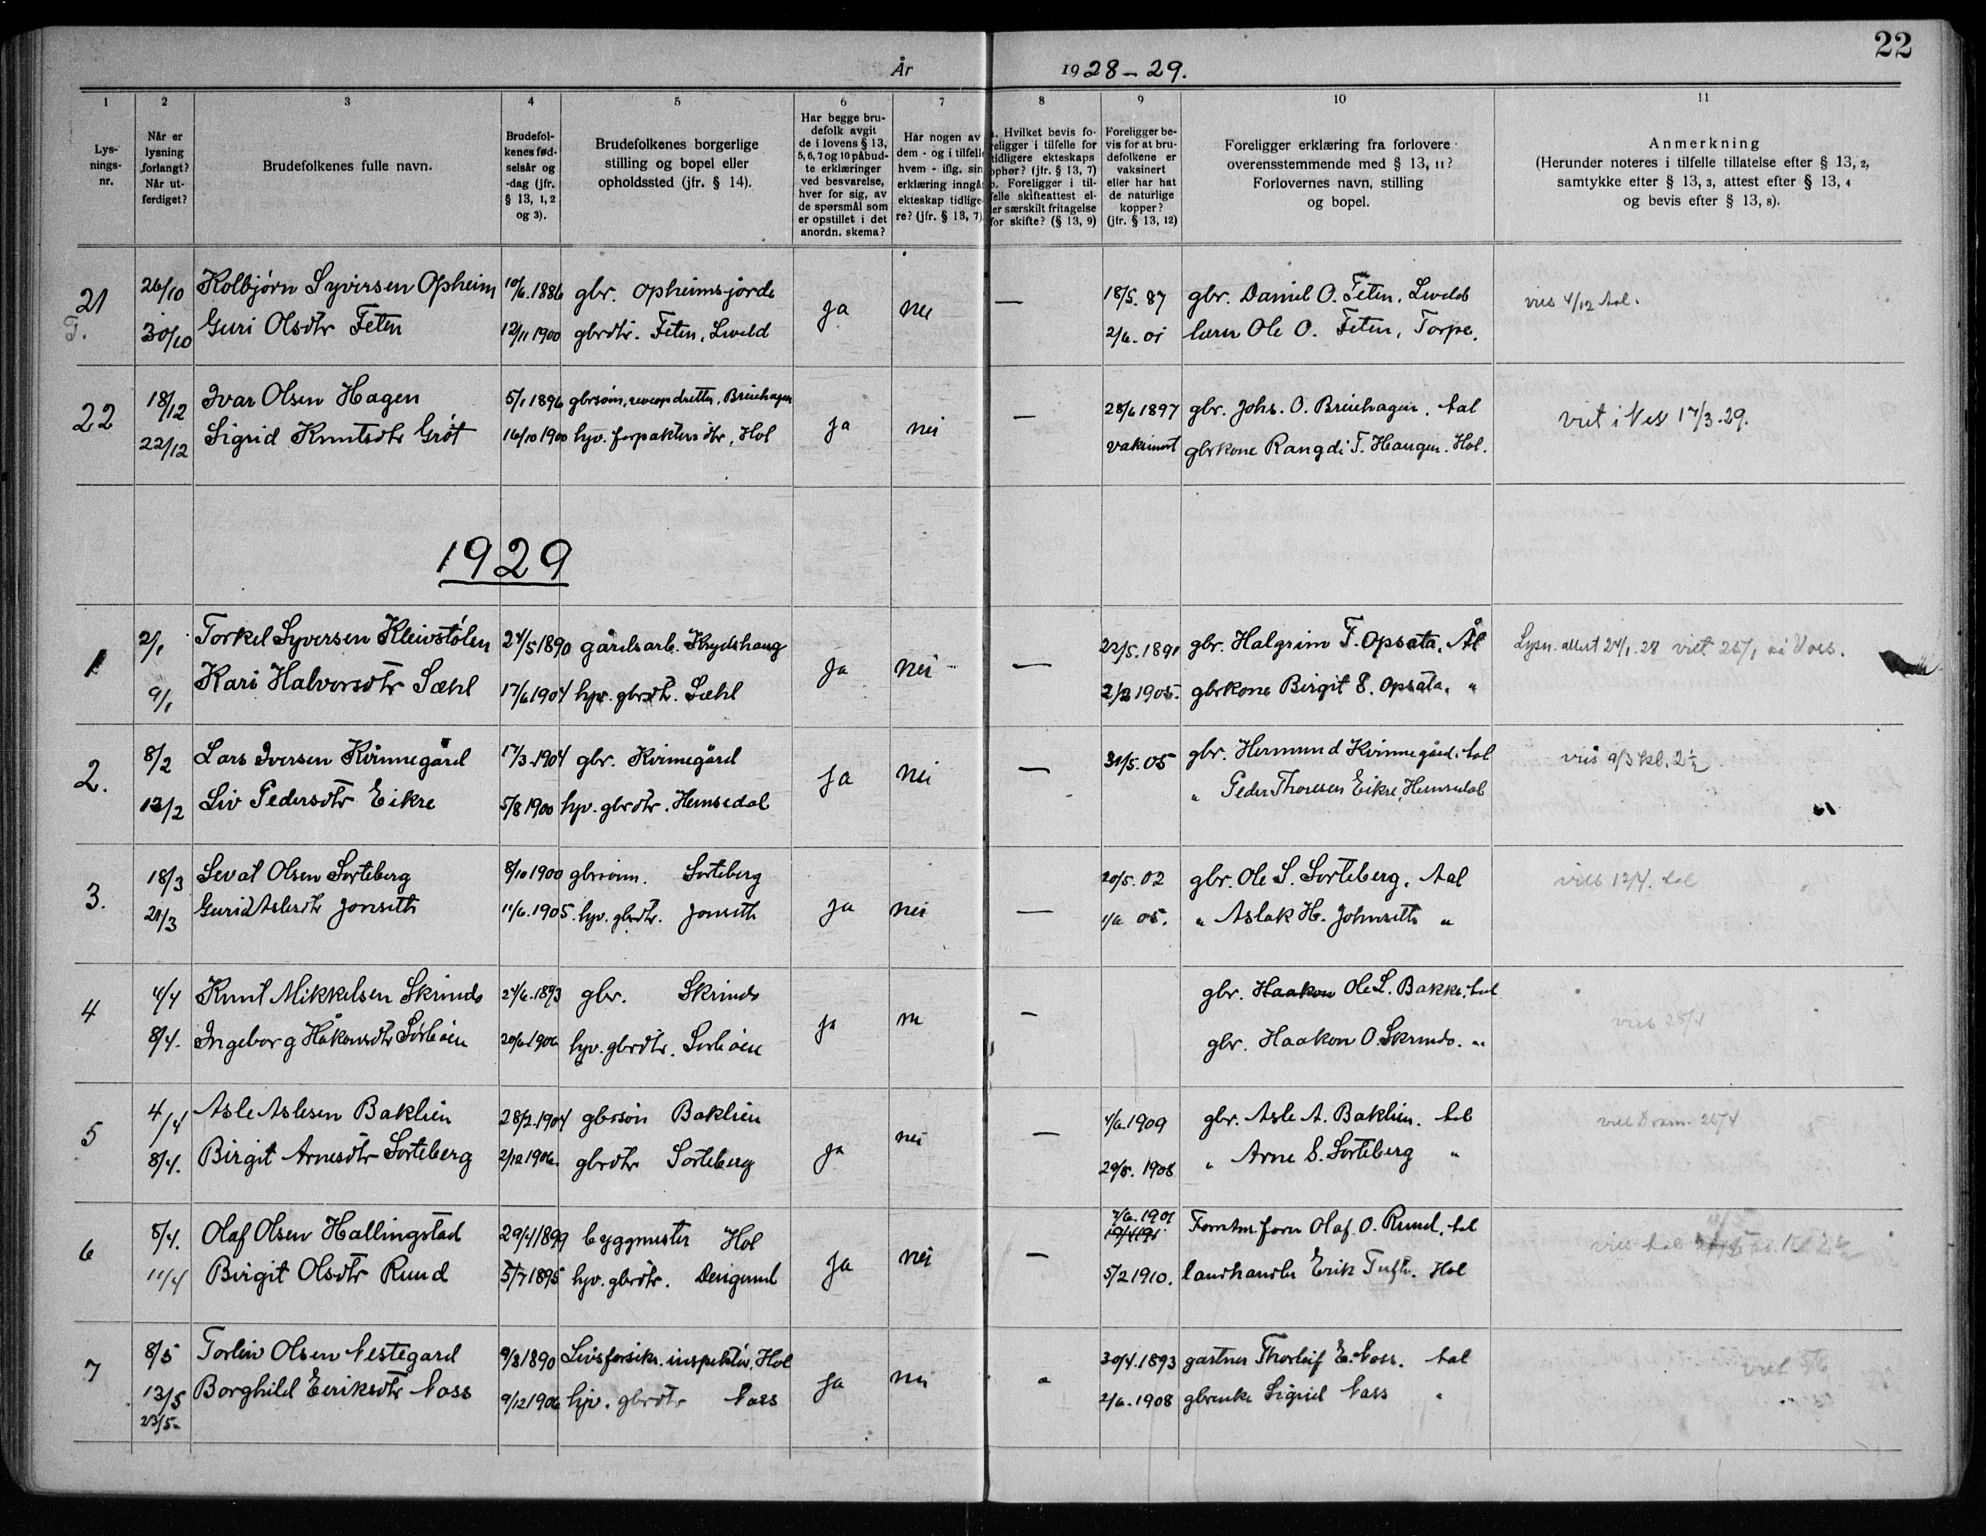 22
År 1928-29.
1 2 3 4 5 6 7 8 9 10 11
Lysnings-nr.
Når er lysning forlangt? Når utferdiget?
Brudefolkenes fulle navn.
Brudefolkenes fødselsår og -dag (jfr. § 13, 1, 2 og 3).
Brudefolkenes borgerlige stilling og bopel eller opholdssted (jfr. § 14).
Har begge brudefolk avgit de i lovens § 13, 5, 6, 7 og 10 påbudte erklæringer ved besvarelse, hver for sig, av de spørsmål som er opstillet i det anordn. skema?
Har nogen av dem - og i tilfelle hvem - iflg. sin erklæring inngå ekteskap tidligere? (jfr. § 13, 7)
. Hvilket bevis foreligger i tilfelle for tidligere ekteskaps ophør? (jfr. § 13, 7) . Foreligger i tilfelle skifteattest eller særskilt fritagelse for skifte? (§ 13, 9)
Foreligger bevis for at brudefolkene er vaksinert eller har hat de naturlige kopper? (jfr. § 13, 12)
Foreligger erklæring fra forlovere overensstemmende med § 13, 11? Forlovernes navn, stilling og bopel.
Anmerkning
(Herunder noteres i tilfelle tillatelse efter § 13, 2, samtykke efter § 13, 3, attest efter § 13, 4 og bevis efter § 13, 8).
21 26/10 Kolbjørn Syversen Opheim 10/6.1886 gbr. Opheimsjorde ja nei — 18/5.87 gbr. Daniel O. Feten, Leveld viet 4/12 Aal.
T. 30/10 Guri Olsdtr Feten 12/11 1900 gbrdtr. Feten, Leveld 2/6.01 lærer Ole O. Feten, Torpe.
22 18/12 Ivar Olsen Hagen 5/1 1896 gbrsøn, reveopdretter, Breiehagen ja nei — 28/6 1897 gbr. Johs. O. Breiehagen, Aal viet i Nes 17/3.29.
22/12 Sigrid Knutsdtr Grøt 16/10 1900 hjv. forpakterdtr, Hol vaksinert gbrkone Rangdi T. Haugen. Hol.
1929
1 2/1 Torkel Syversen Kleivstølen 24/5 1890 gårdsarb. Krydshaug ja nei — 22/5.1891 gbr. Halgrim T. Opsata, Ål Lysn. attest 24/1.28 viet 25/1 i Voss.
9/1 Kari Halvorsdtr Sæhl 17/6 1904 hjv. gbrdtr. Sæhl 2/2 1905. gbrkone Birgit E. Opsata. "
2. 8/2 Lars Iversen Kvinnegård 17/3.1904 gbr. Kvinnegård ja nei — 31/5.05 gbr. Hermund Kvinnegård, Aal viet 9/3 kl. 2½.
13/2 Liv Pedersdtr Eikre 5/8 1900 hjv. gbrdtr. Hemsedal " Peder Thoresen Eikre, Hemsedal
3. 18/3 Sevat Olsen Sorteberg 8/10 1900 gbrsønn. Sorteberg ja nei — 20/5.02 gbr. Ole S. Sorteberg, Aal viet 12/4. Aal
21/3 Gurid Aslesdtr Jonseth 11/6.1905. hjv. gbrdtr. Jonseth 1/6 05. " Aslak H. Johnseth "
4 4/4 Knut Mikkelsen Skrindo 24/6.1893 gbr. Skrindo ja n — gbr. Haakon Ole L. Bakke, Aal viet 28/4
8/4. Ingeborg Håkonsdtr Sørbøen 20/6 1906 hjv. gbrdtr. Sørbøen gbr. Haakon O. Skrindo. "
5 4/4 Asle Aslesen Baklien 28/2.1904 gbrsøn Baklien ja nei — 4/6.1909 gbr. Asle A. Baklien. Aal viet Dram. 25/4
8/4. Birgit Arnesdtr Sorteberg 2/12 1906. gbrdtr Sorteberg 29/5.1908 " Arne S. Sorteberg "
6 5/4. Olaf Olsen Hallingstad 29/4 1899 byggmester Hol ja nei — 7/6.1901 Formann Olaf O. Ruud, Aal viet Aal
11/4 Birgit Olsdtr Ruud 5/7 1895 hjv. gbrdtr. 5/2 1910. landhandler Erik Tufte. Hol
7 8/5 Torleiv Olsen Nestegard 9/3 1890 Livsforsikr. inspektør, Hol ja nei 30/4.1893 gartner Thorleif E. Noss. Aal viet 5/6
13/5 Borghild Eeriksdtr Noss 9/12 1906 hjv. gbrdtr Noss 2/6.1908 gbrenke Sigrid Noss "
23/5-